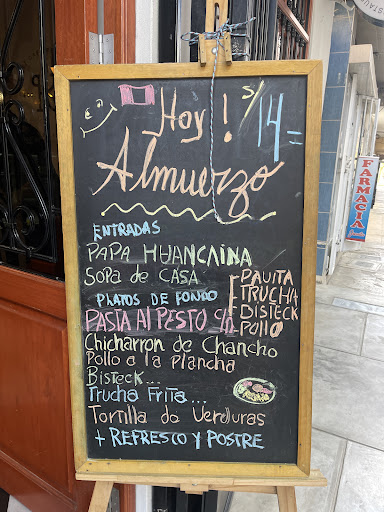 Hoy! S/14=
Almuerzo
ENTRADAS
PAPA HUANCAINA
SOPA DE CASA
PLATOS DE FONDO
PASTA AL PESTO C/
PAVITA
TRUCHA
BISTECK
POLLO
Chicharron de Chancho
Pollo a la plancha
Bisteck...
Trucha Frita...
Tortilla de Verduras
+ REFRESCO Y POSTRE
FARMACIA